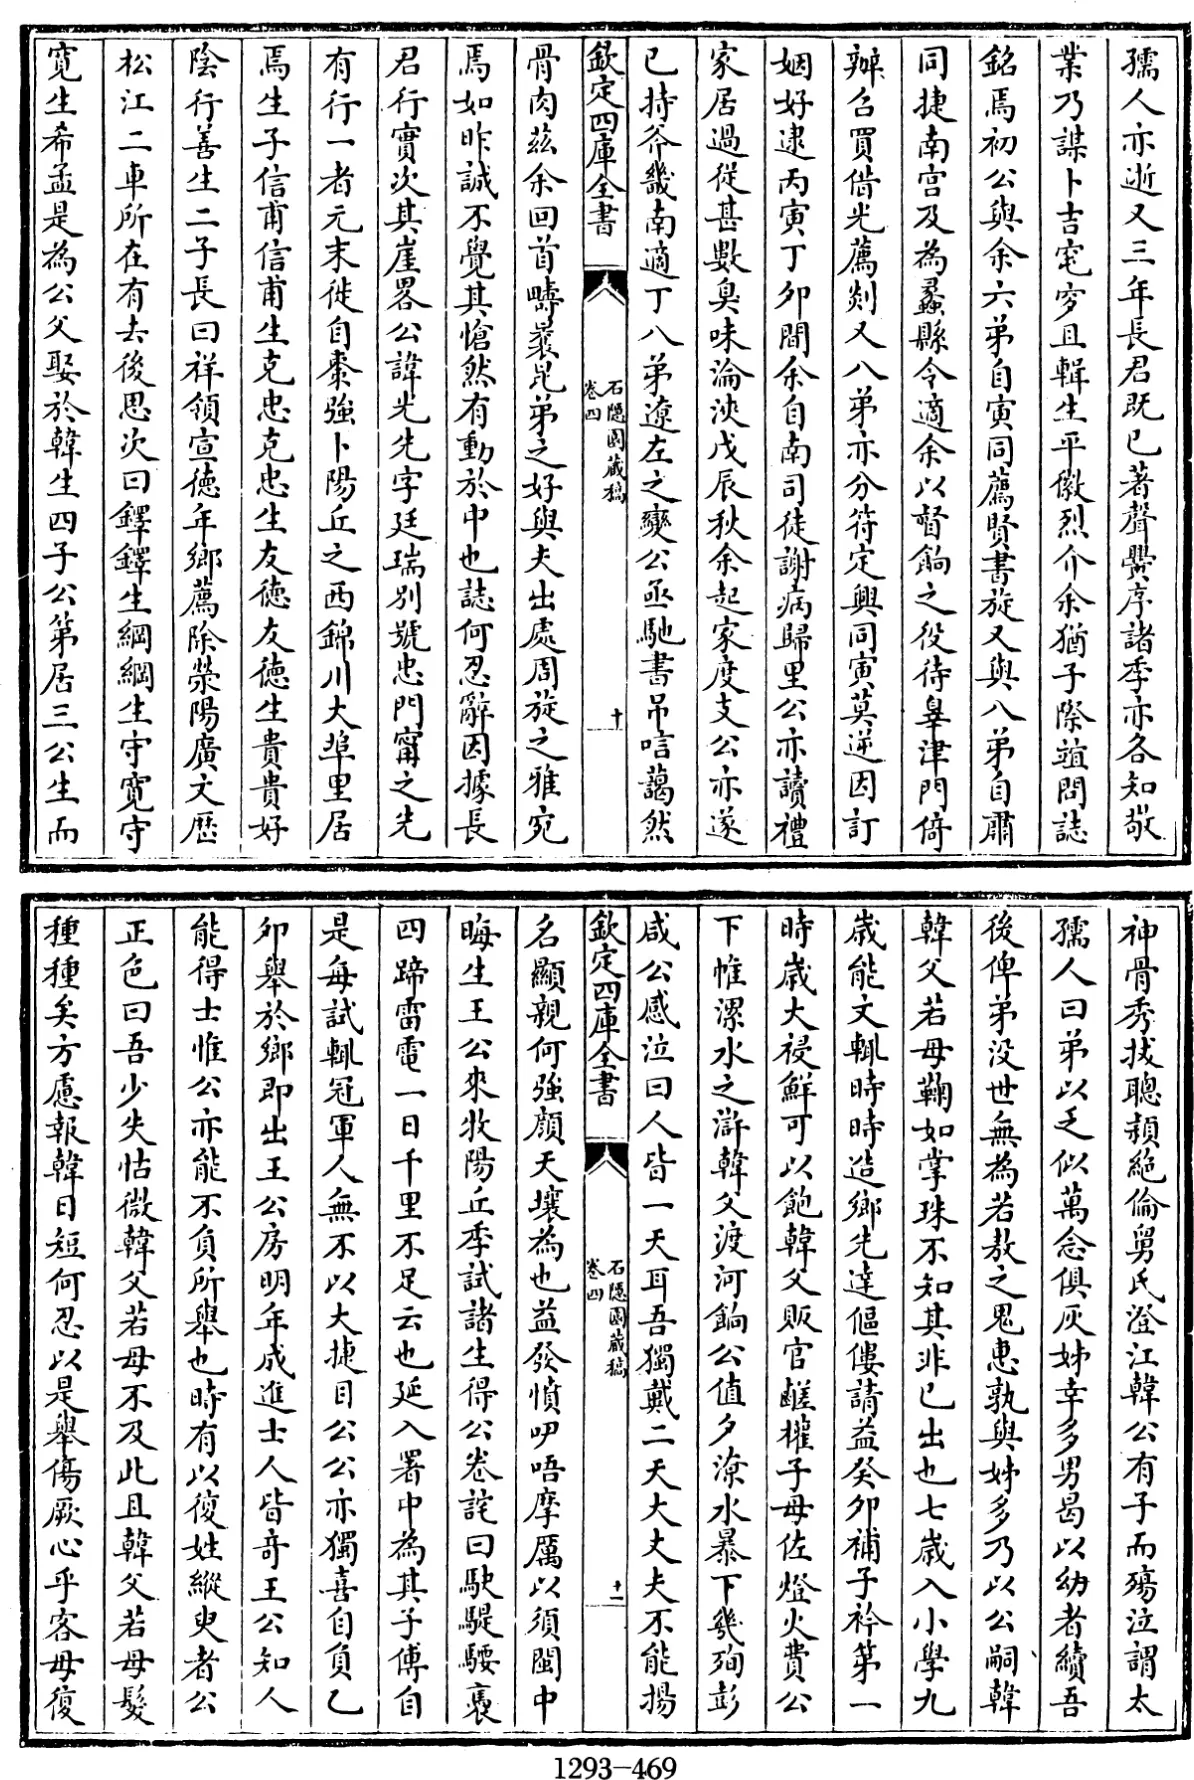 孺人亦逝又三年長君既已著聲黌序諸季亦各知敬
業乃謀卜吉窀穸且輯生平徽烈介余猶子際𧦬問誌
銘焉初公與余六弟自寅同薦賢書旋又與八弟自肅
同捷南宫及為蠡縣令適余以督餉之役待辠津門倚
辦刍買借光薦剡又八弟亦分符定興同寅莫逆因訂
姻好逮丙寅丁夘間余自南司徒謝病歸里公亦讀禮
家居過從甚數臭味淪浹戊辰秋余起家度支公亦遂
已持斧畿南適丁八弟遼左之變公亟馳書吊唁藹然
欽定四庫全書
石隱園藏稿
卷四
十
骨肉兹余回首疇曩昆弟之好與夫出處周旋之雅宛
焉如昨誠不覺其愴然有動於中也誌何忍辭因據長
君行實次其崖畧公諱光先字廷瑞别號忠門甯之先
有行一者元末徙自棗強卜陽丘之西錦川大埠里居
焉生子信甫信甫生克忠克忠生友德友德生貴貴好
陰行善生二子長曰祥領宣德年鄉薦除滎陽廣文歴
松江二車所在有去後思次曰鐸鐸生綱綱生守寛守
寛生希孟是為公父娶於韓生四子公第居三公生而
神骨秀拔聰頴絶倫舅氏澄江韓公有子而殤泣謂太
孺人曰弟以乏似萬念俱灰姊幸多男曷以幼者續吾
後俾弟沒世無為若敖之鬼恵孰與姊多乃以公嗣韓
韓父若母鞠如掌珠不知其非已出也七歳入小學九
歳能文輒時時造鄉先達傴僂請益癸夘補子衿第一
時歳大祲鮮可以飽韓父販官鹺㩁子母佐燈火費公
下帷漯水之滸韓父渡河餉公值夕潦水暴下幾殉彭
咸公感泣曰人皆一天耳吾獨戴二天大丈夫不能揚
欽定四庫全書
石隱園藏稿
卷四
十一
名顯親何強顔天壤為也益發憤吚唔摩厲以須閩中
晦生王公來牧陽丘季試諸生得公卷詫曰駃騠騕褭
四蹄雷電一日千里不足云也延入署中為其子傅自
是每試輒冠軍人無不以大捷目公公亦獨喜自負乙
夘舉於鄉即出王公房明年成進士人皆竒王公知人
能得士惟公亦能不負所舉也時有以復姓縱臾者公
正色曰吾少失怙微韓父若母不及此且韓父若母髮
種種矣方慮報韓日短何忍以是舉傷厥心乎客毋復
1293-469